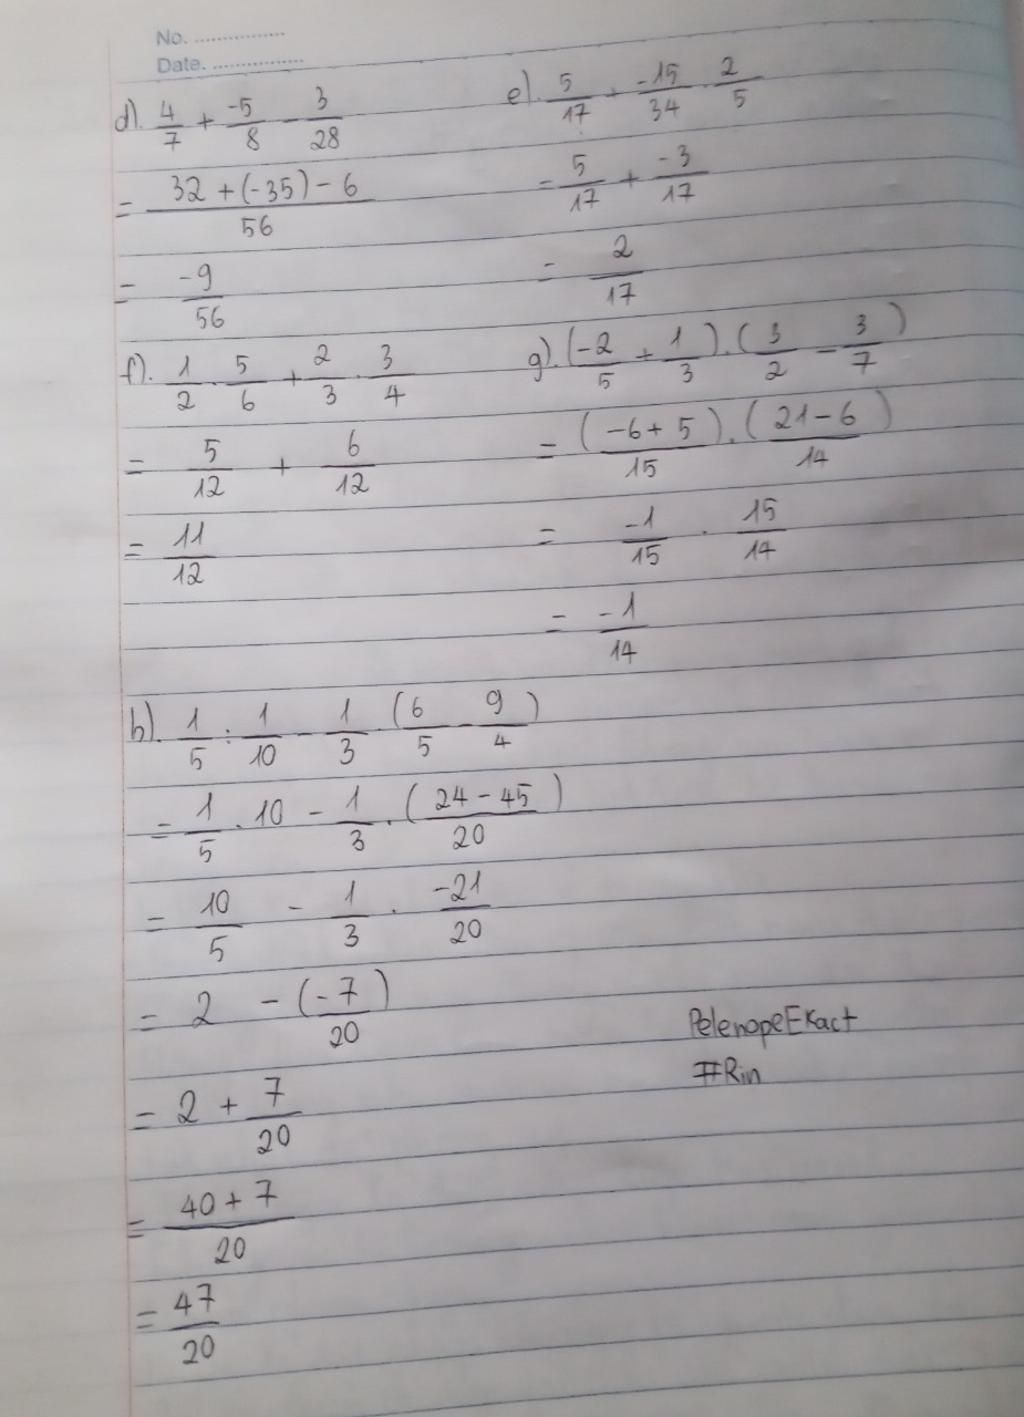 No. ................
Date. ................
d). 4/7 + -5/8 - 3/28
= 32 + (-35) - 6 / 56
= -9/56
e). 5/17 + -15/34 . 2/5
= 5/17 + -3/17
= 2/17
f). 1/2 . 5/6 + 2/3 . 3/4
= 5/12 + 6/12
= 11/12
g). (-2/5 + 1/3) . (3/2 - 3/7)
= (-6 + 5 / 15) . (21 - 6 / 14)
= -1/15 . 15/14
= -1/14
h). 1/5 : 1/10 - 1/3 . (6/5 - 9/4)
= 1/5 . 10 - 1/3 . (24 - 45 / 20)
= 10/5 - 1/3 . -21/20
= 2 - (-7/20)
= 2 + 7/20
= 40 + 7 / 20
= 47/20
PelenopeExact
#Rin